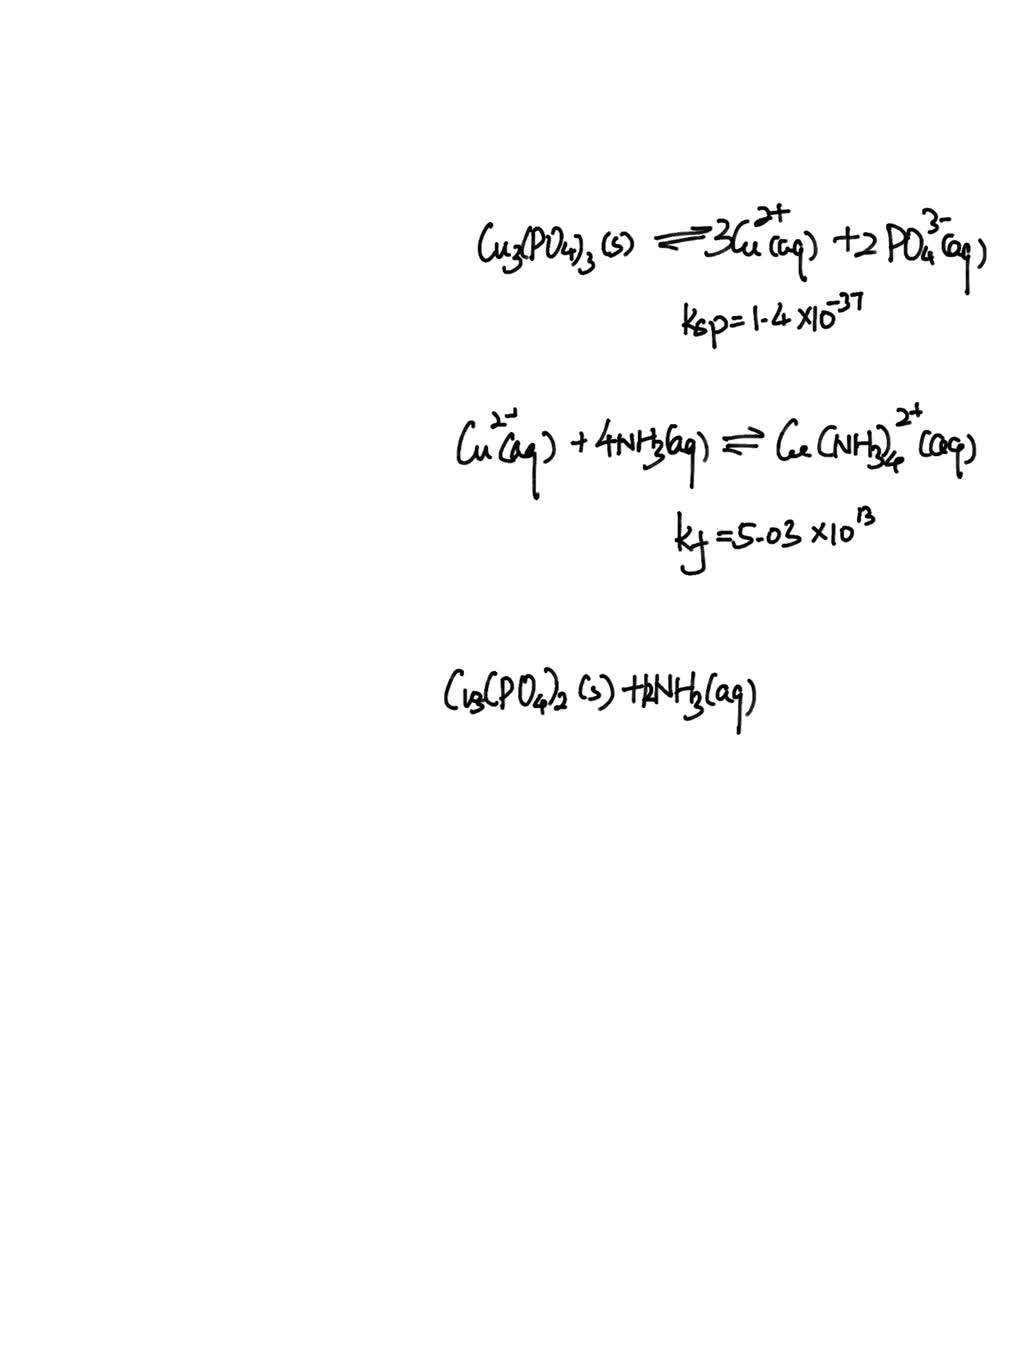 Cu₃(PO₄)₃ (s) ⇌ 3Cu²⁺(aq) + 2 PO₄³⁻(aq)
Ksp = 1.4 × 10⁻³⁷
Cu²⁺(aq) + 4NH₃(aq) ⇌ Cu(NH₃)₄²⁺(aq)
Kf = 5.03 × 10¹³
Cu₃(PO₄)₂ (s) + 12NH₃(aq)